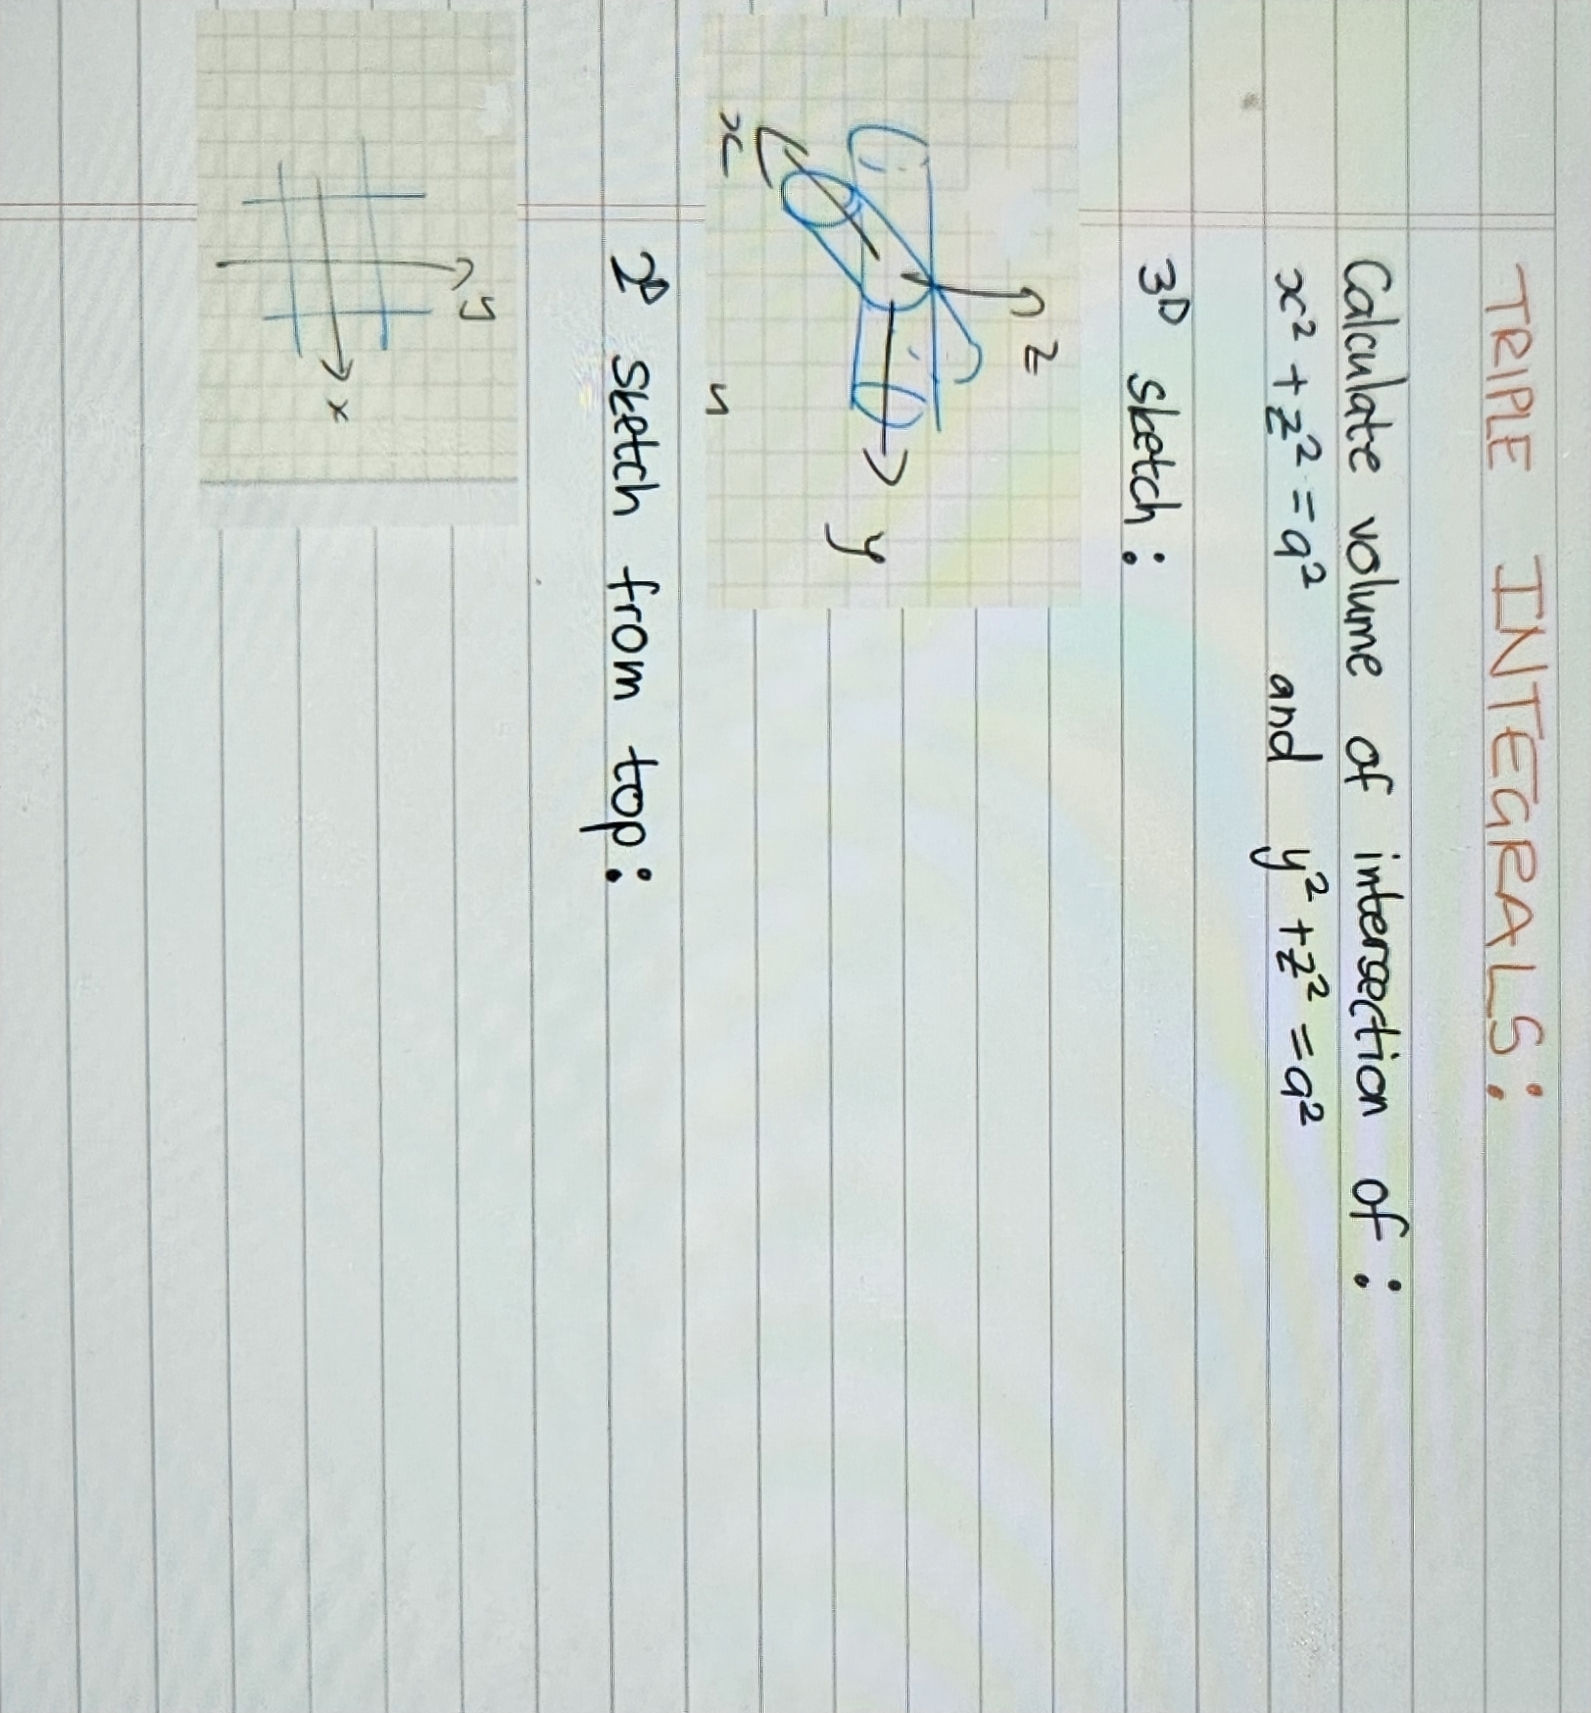 TRIPLE INTEGRALS:
Calculate volume of intersection of:
x² + z² = a² and y² + z² = a²
3D sketch:
z
y
x
y
2D sketch from top:
y
x